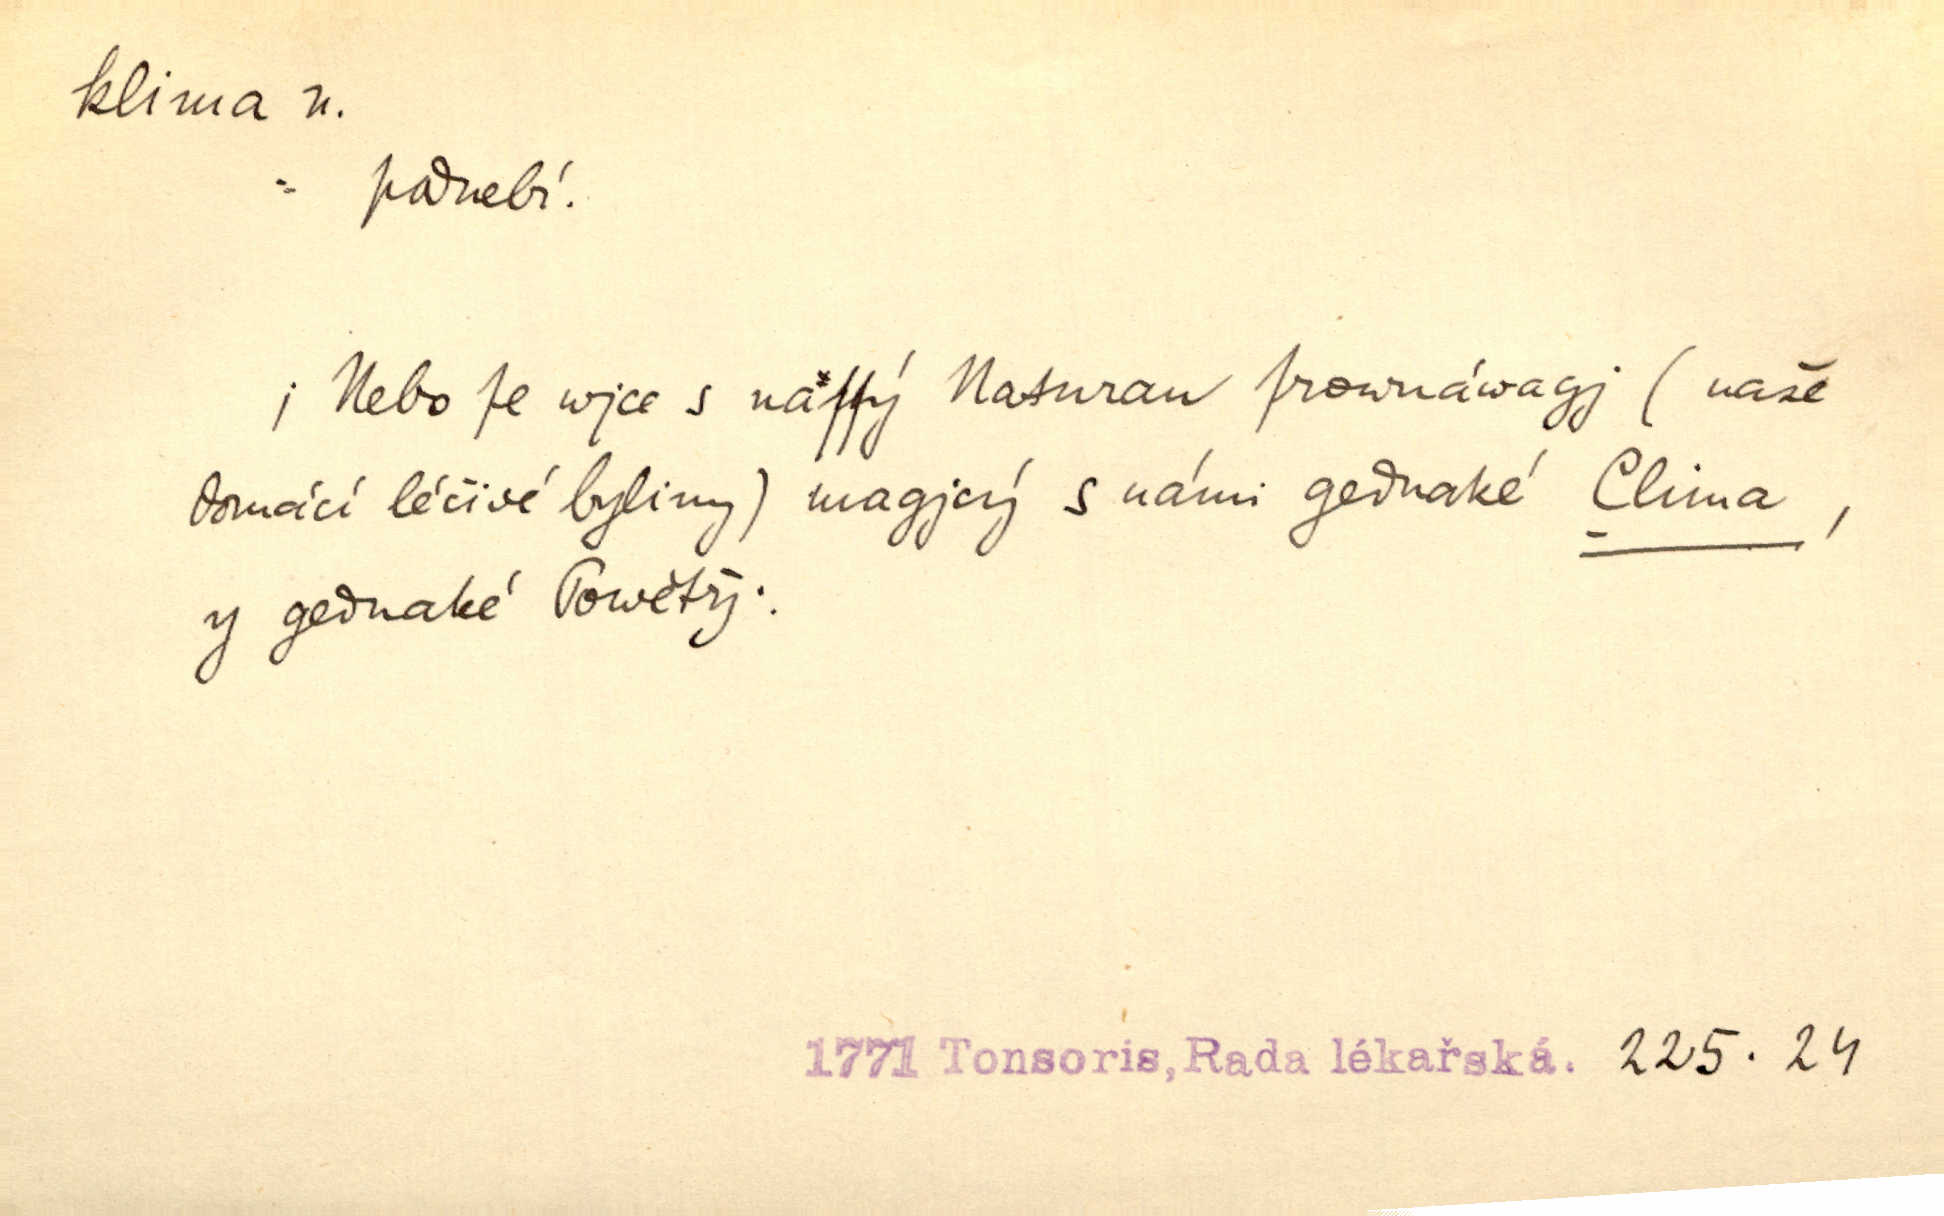 klima n.
= podnebí.
; Nebo ſe wjce s naſſý Naturau ſrownáwagj (naše
domácí léčivé byliny) magjcý s námi gednaké Clima,
y gednaké Powětřj.
1771 Tonsoris, Rada lékařská. 225. 24